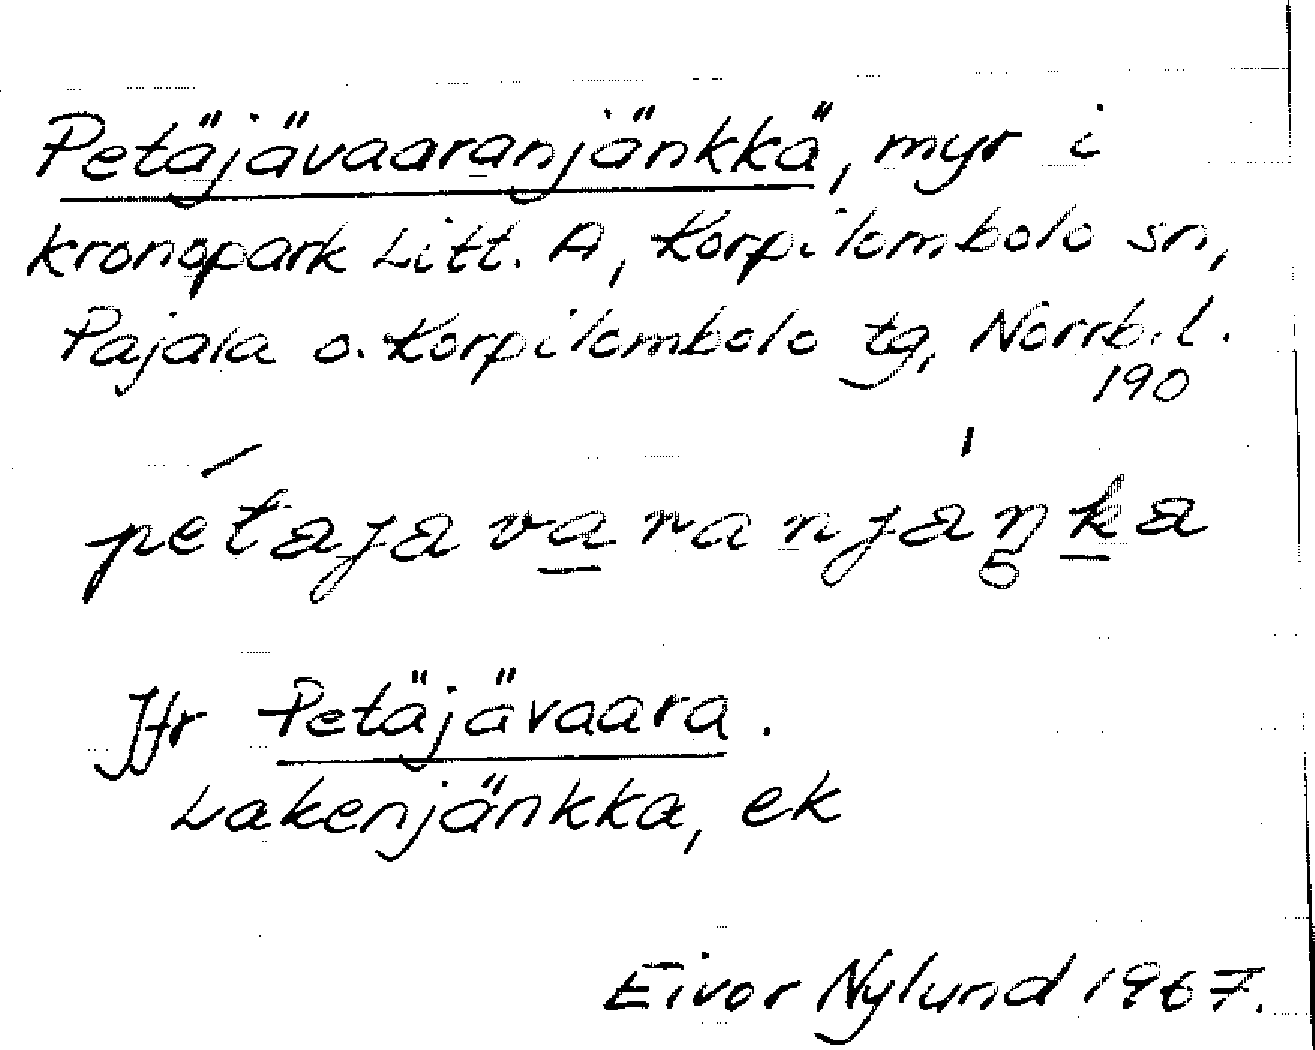 Petäjävaaranjänkkä, myr i
kronopark Litt. A, Korpilombolo sn,
Pajala o. Korpilombolo tg, Norrb. l.
190
pétajavaranjáŋka
Jfr Petäjävaara.
Lakenjänkka, ek
Eivor Nylund 1967.